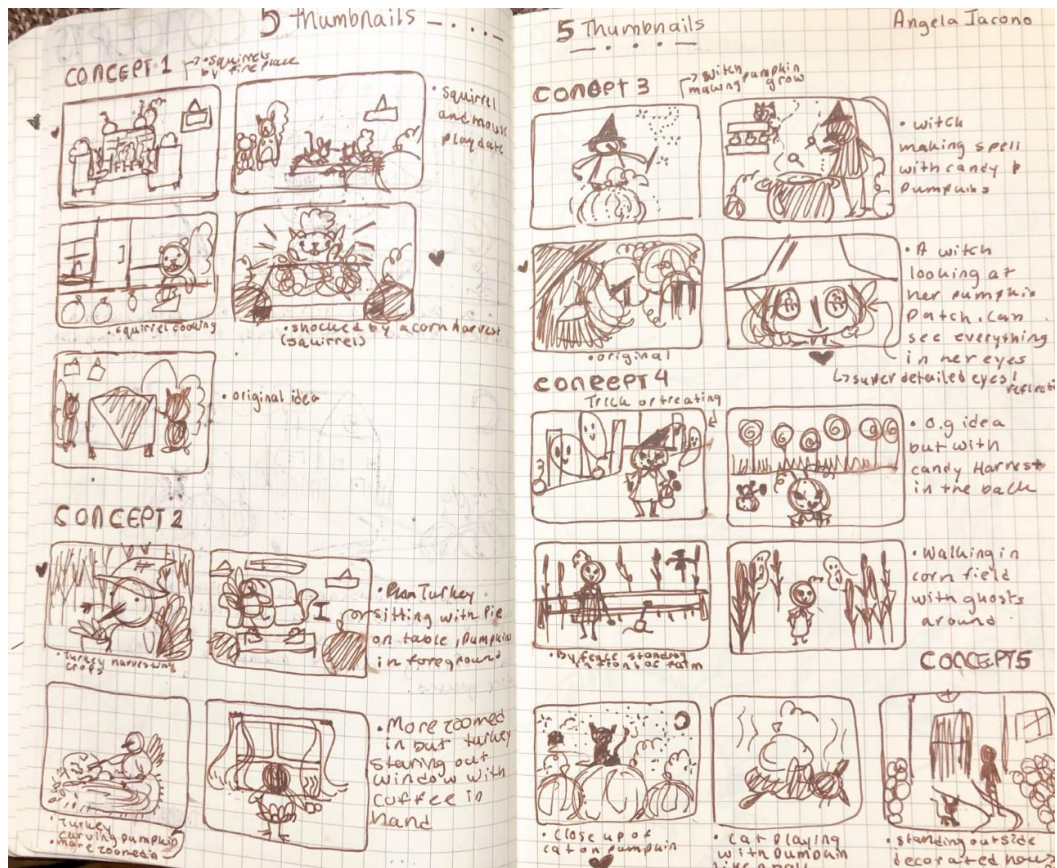 5 Thumbnails
CONCEPT 1
squirrels
by fireplace
• squirrel
and mouse
playdate
• squirrel cooking
• shocked by acorn harvest
(squirrel)
• original idea
CONCEPT 2
• Turkey harvesting
crops
Turkey
sitting with Pie
on table, Pumpkin
in foreground
• Turkey
carving pumpkin
• more zoomed in
• More zoomed
in but turkey
staring out
window with
coffee in
hand
5 Thumbnails
Angela Iacono
CONCEPT 3
witch
making pumpkin
grow
• witch
making spell
with candy &
Pumpkins
• original
• A witch
looking at
her pumpkin
Patch. Can
see everything
in her eyes
super detailed eyes!
reflection
CONCEPT 4
Trick or treating
• O.g idea
but with
candy Harvest
in the back
• By fence standing
in front of farm
• Walking in
corn field
with ghosts
around
CONCEPT 5
• close up of
cat on pumpkin
• cat playing
with Pumpkin
• standing outside
decorated house